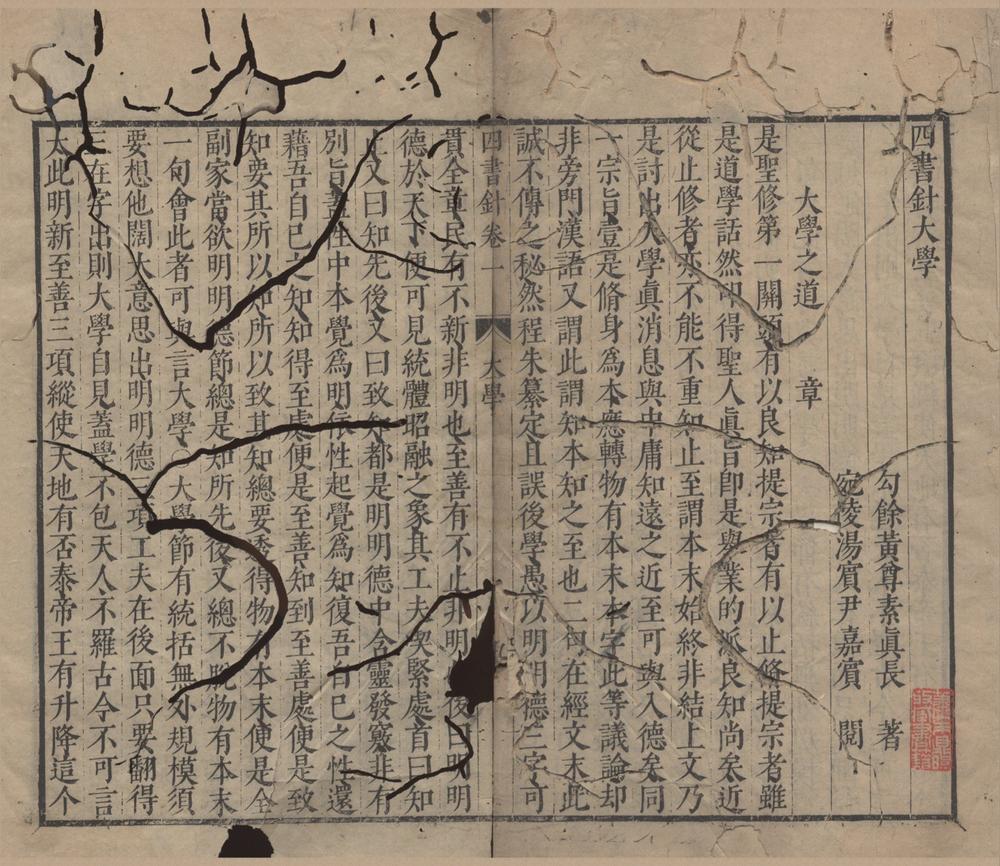 四書針大學
勾餘黃尊素眞長 著
宛陵湯賓尹嘉賓 閱
大學之道 章
是聖修第一關頭有以良知提宗者有以止修提宗者雖
是道學話然印得聖人眞旨卽是舉業的派良知尚矣近
從止修者亦不能不重知止至謂本末始終非結上文乃
是討出大學眞消息與中庸知遠之近至可與入德矣同
一宗旨壹是脩身爲本應轉物有本末本字此等議論却
非旁門漢語又謂此謂知本知之至也二句在經文末此
誠不傳之秘然程朱纂定且誤後學愚以明明德三字可
四書針卷一 大學
貫全章民有不新非明也至善有不止非明 後曰明明
德於天下便可見統體昭融之象其工夫喫緊處首曰知
止又曰知先後又曰致知都是明明德中含靈發竅非有
別旨蓋性中本覺爲明依性起覺爲知復吾自己之性還
藉吾自己之知知得至處便是至善知到至善處便是致
知要其所以知所以致其知總要透得物有本末便是全
副家當欲明明德節總是知所先後又總不脫物有本末
一句會此者可與言大學〇大學 節有統括無外規模須
要想他闊大意思出明明德三項工夫在後面只要翻得
三在字出則大學自見蓋學不包天人不羅古今不可言
大此明新至善三項縱使天地有否泰帝王有升降這个